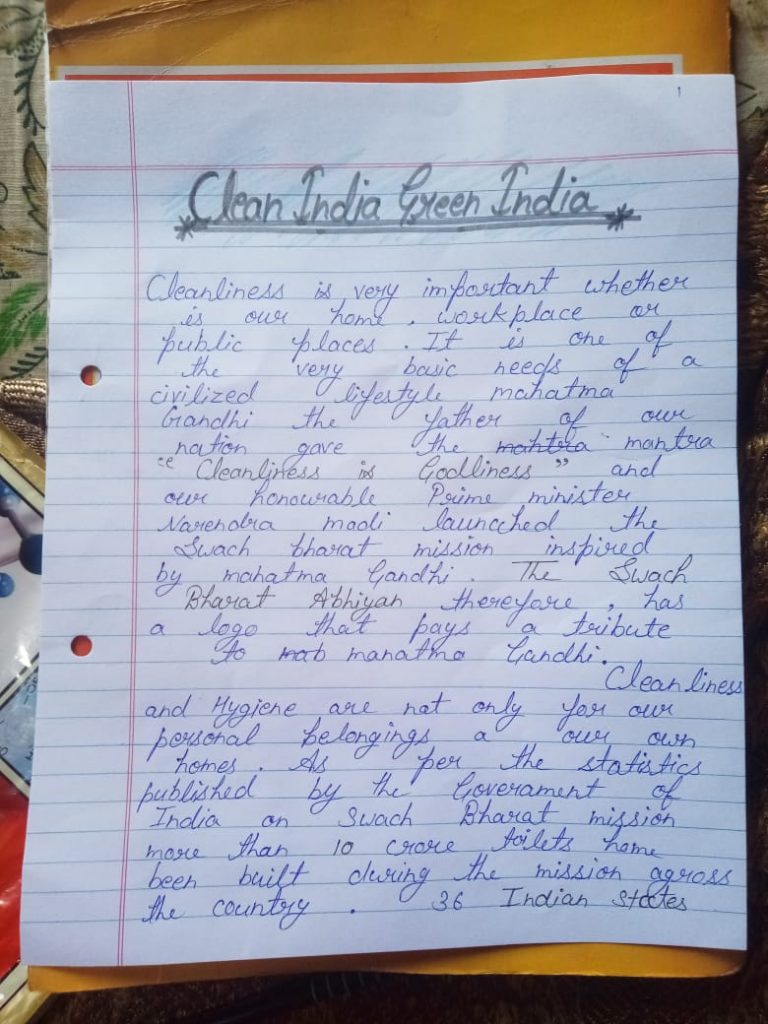 1
Clean India Green India
Cleanliness is very important whether
is our home, workplace or
public places. It is one of
the very basic needs of a
civilized lifestyle mahatma
Gandhi the father of our
nation gave the mahtra mantra
"Cleanliness is Godliness" and
our honourable Prime minister
Narendra modi launcched the
Swach bharat mission inspired
by mahatma Gandhi. The Swach
Bharat Abhiyan therefore, has
a logo that pays a tribute
to mab manatma Gandhi.
Cleanliness
and Hygiene are not only for our
personal belongings a our own
homes. As per the statistics
published by the Goverament of
India on Swach Bharat mission
more than 10 crore toilets home
been built during the mission agross
the country. 36 Indian States